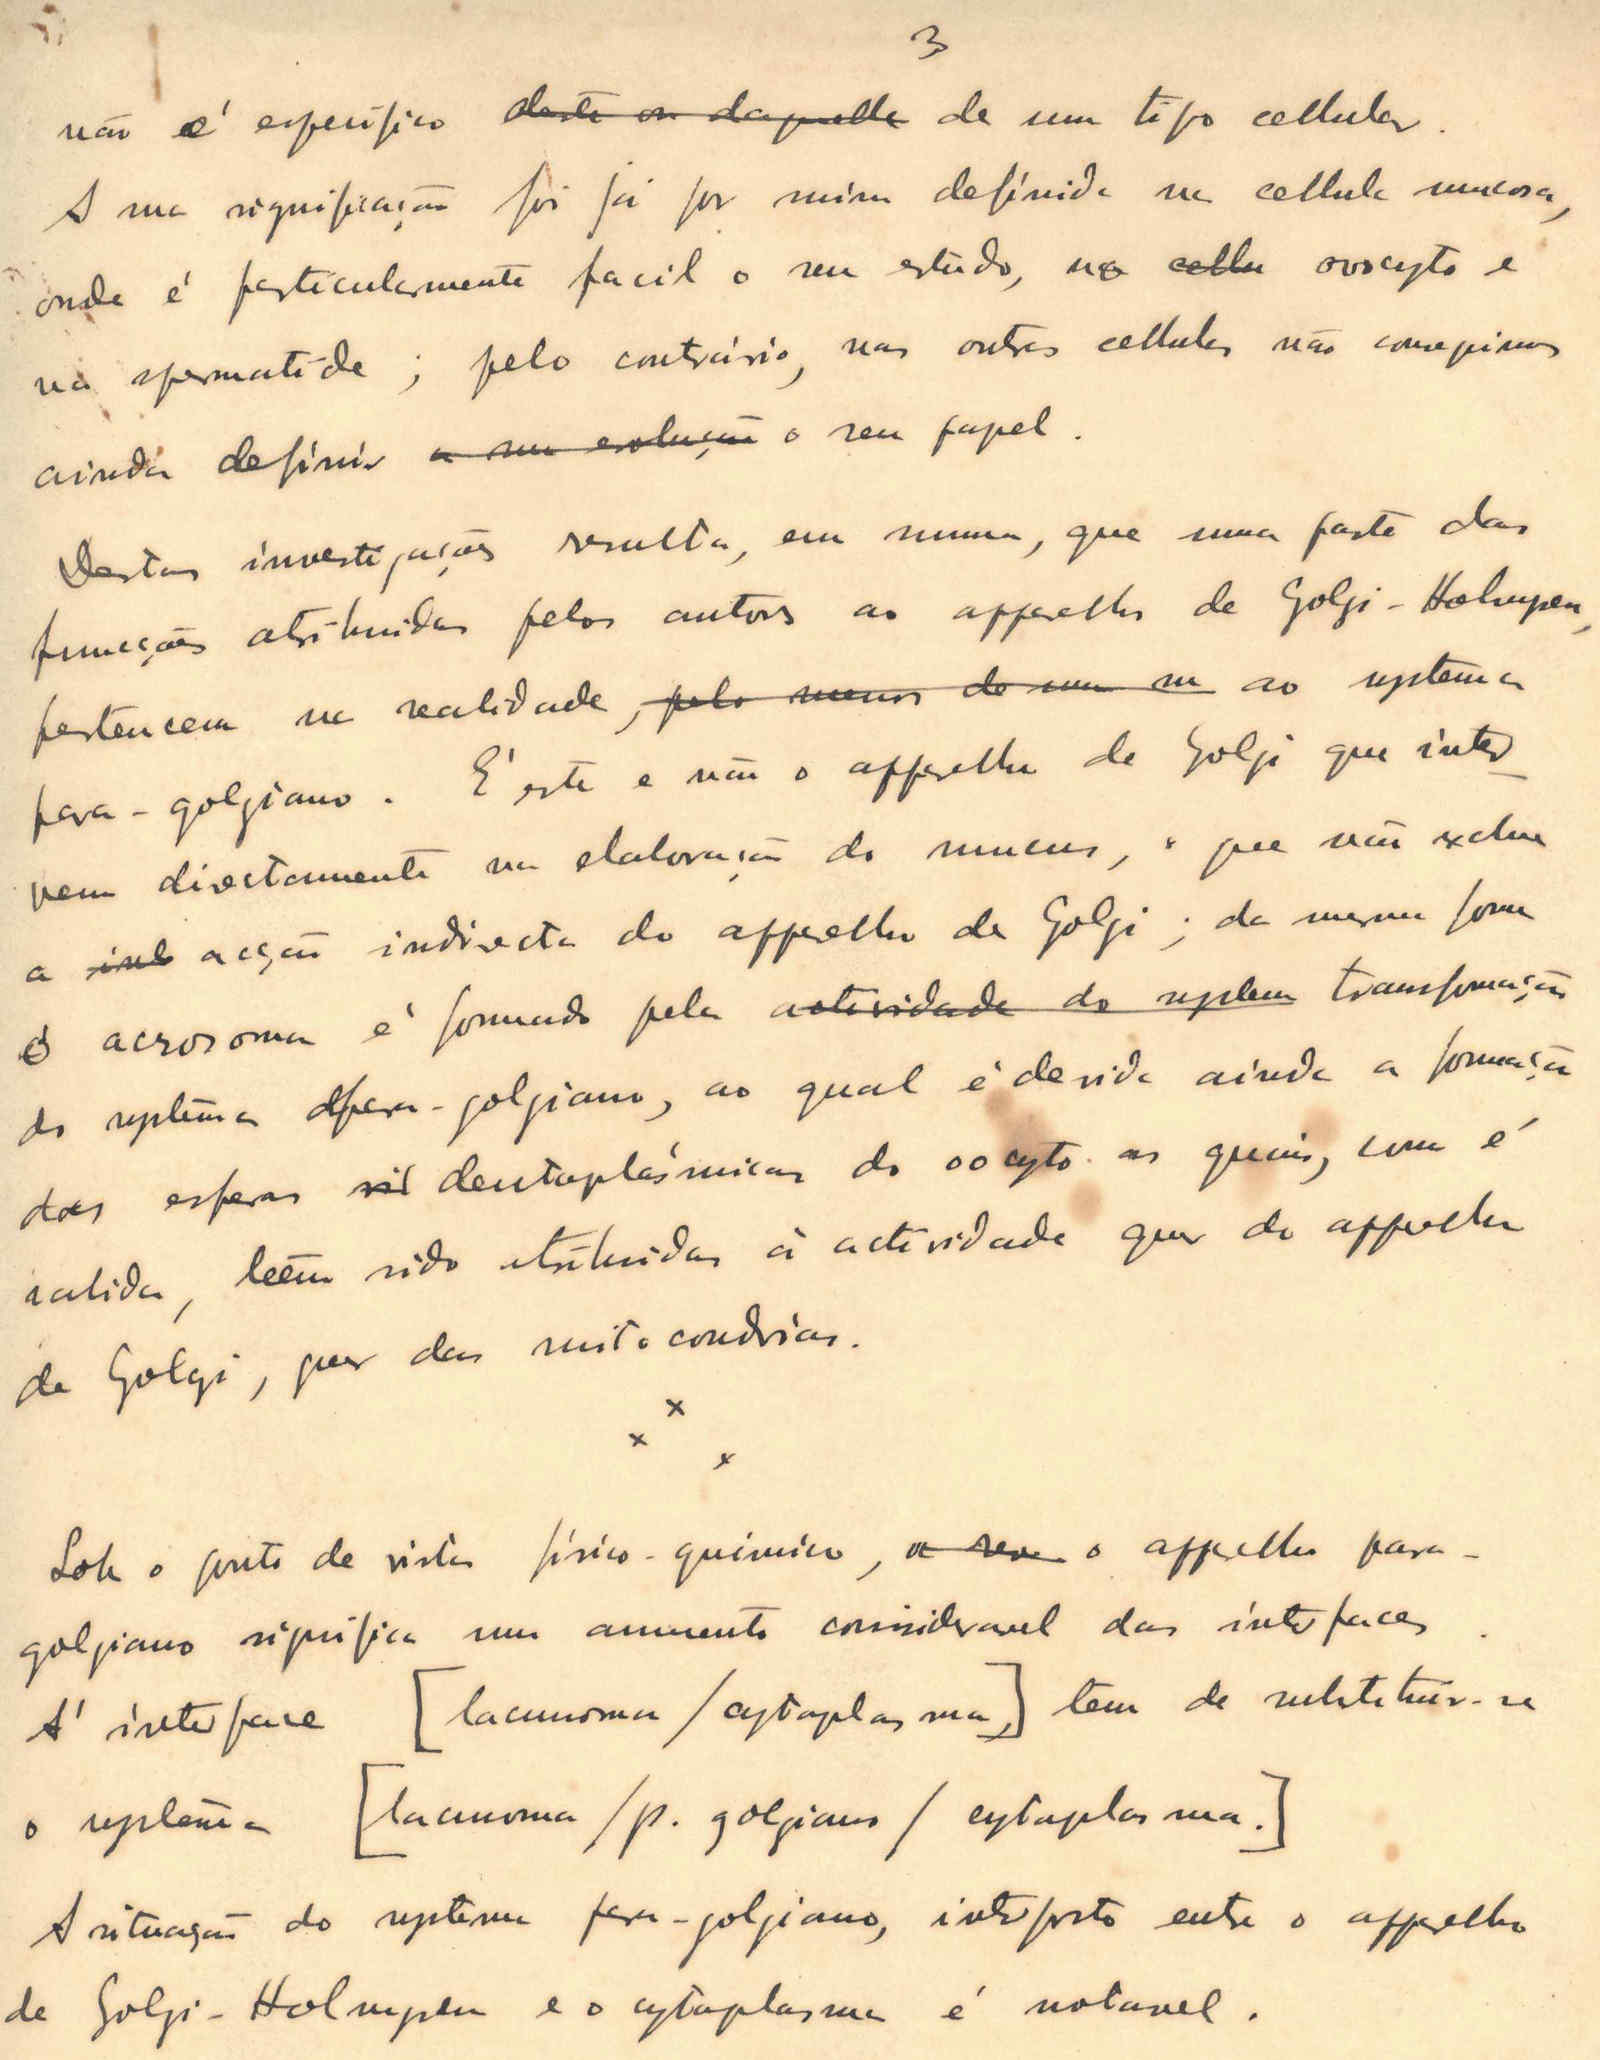 3
não é específico deste ou daquelle de um tipo cellular.
A sua significação foi já por mim definida na cellula mucosa,
onde é particularmente facil o seu estudo, no cellu ovocyto e
na spermatide ; pelo contrário, nas outras cellulas não conseguimos
ainda definir a sua evolução o seu papel.
Destas investigações resulta, em summa, que uma parte das
funcções atribuidas pelos autores ao apparelho de Golgi-Holmgren,
pertencem na realidade, pelo menos de um ao systema
para-golgiano. É este e não o apparelho de Golgi que inter
vem directamente na elaboração do mucus, o que não exclue
a acção indirecta do apparelho de Golgi ; da mesma forma
o acrosoma é formado pela actividade do system transformação
do systêma para-golgiano, ao qual é devida ainda a formação
das esferas deutoplásmicas do oocyto as quais, como é
sabido, teem sido atribuidas á actividade quer do apparelho
de Golgi, quer das mitocondrias.
x
x x
Sob o ponto de vista físico-químico, o apparelho para-
golgiano significa um aumento consideravel das interfaces.
A' interface [lacunoma / cytoplasma,] tem de substituir-se
o systêma [lacunoma / p. golgiano / cytoplasma.]
A situação do systema para-golgiano, interposto entre o apparelho
de Golgi-Holmgren e o cytoplasma é notavel.